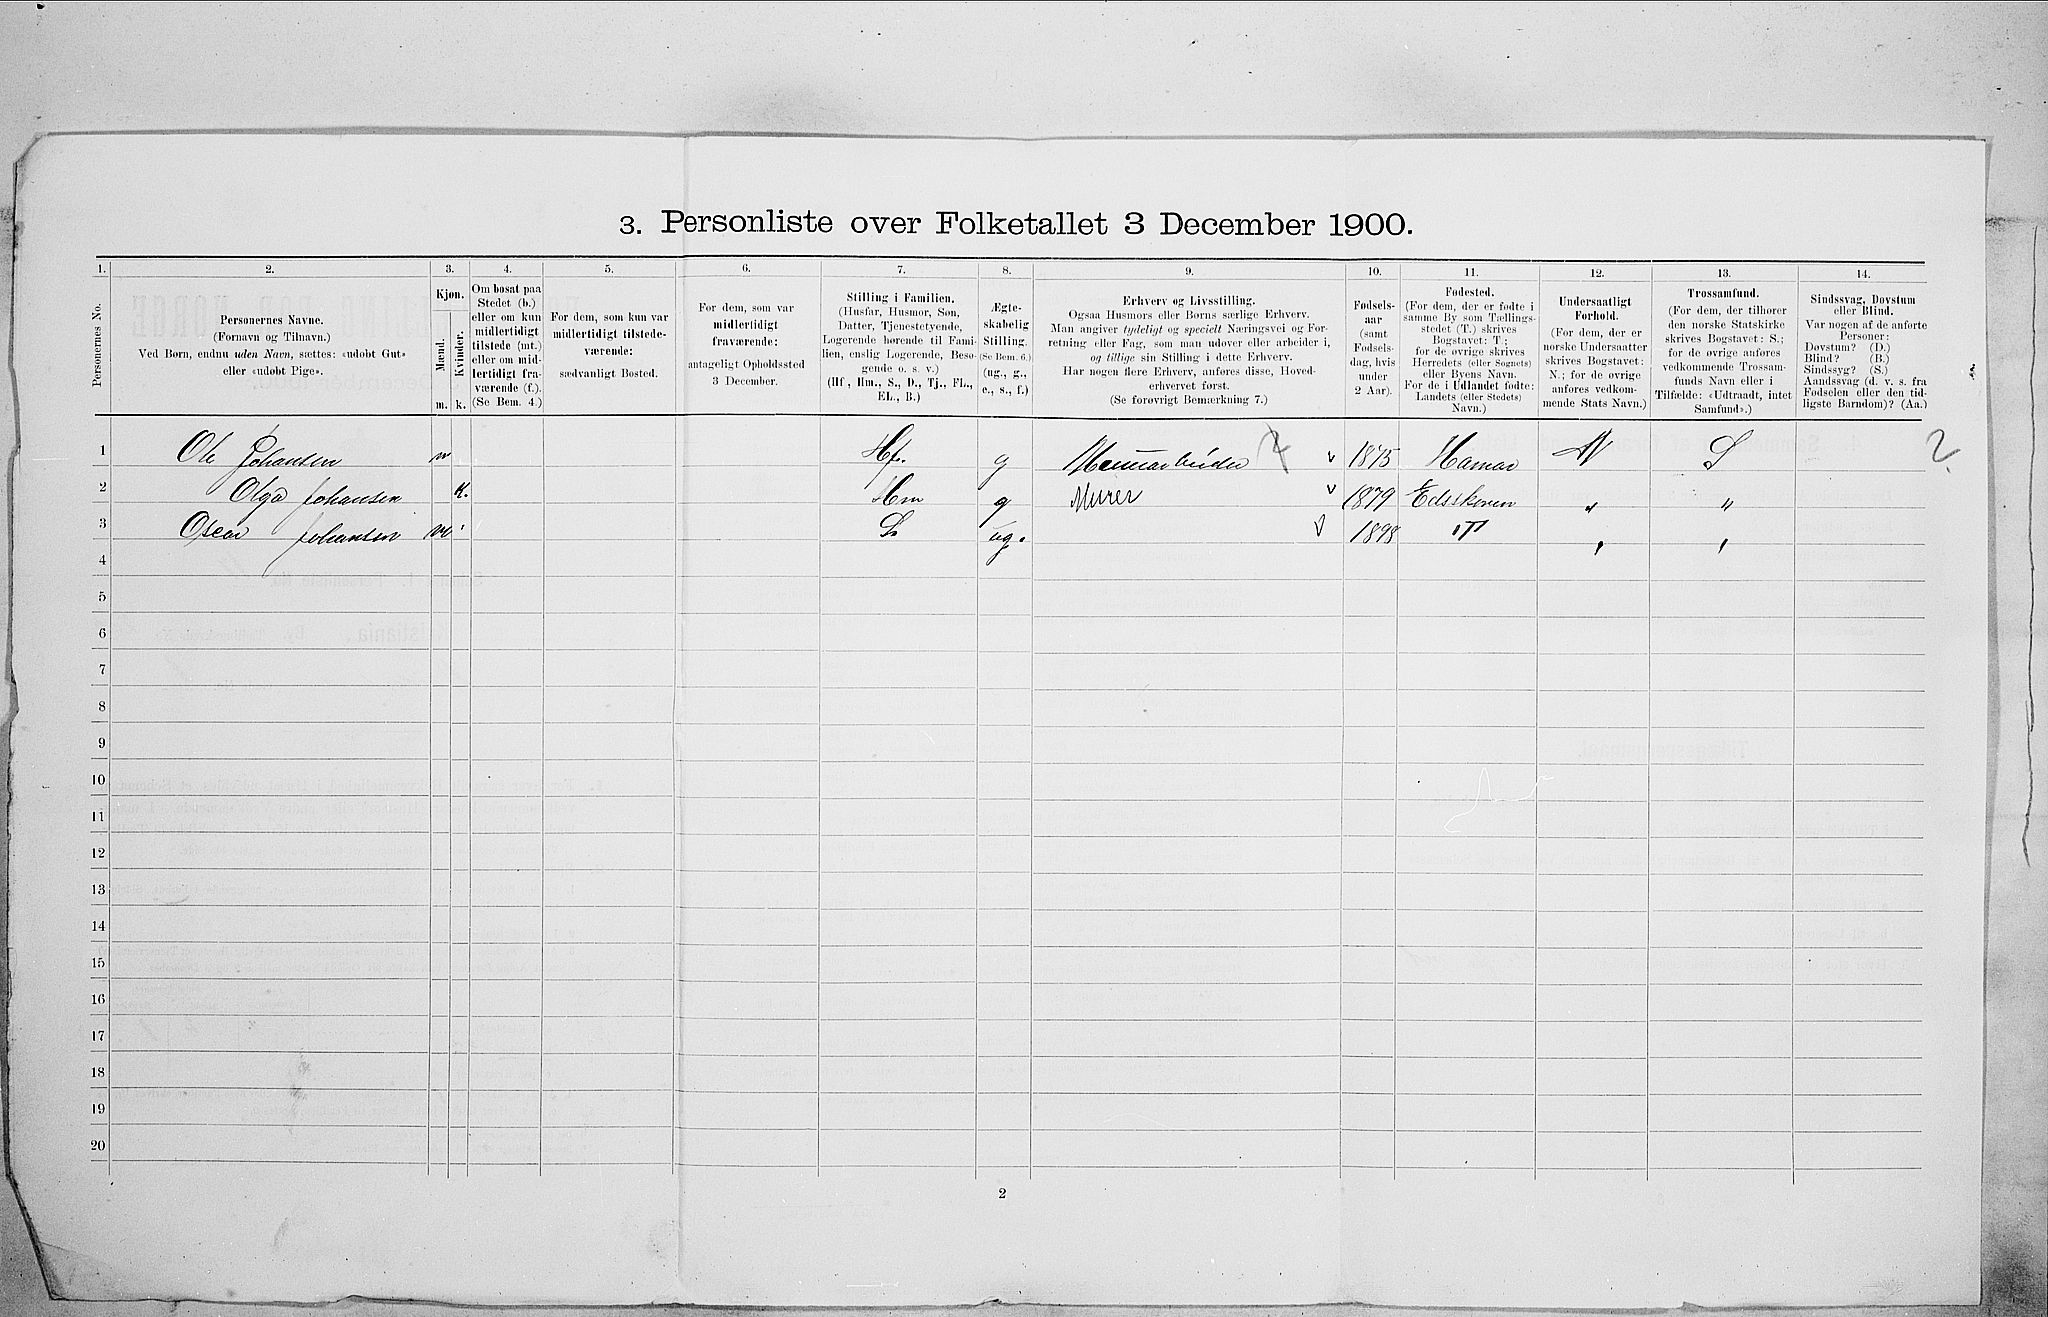 3. Personliste over Folketallet 3 December 1900.
1. 2. 3. 4. 5. 6. 7. 8. 9. 10. 11. 12. 13. 14.
Personernes No.
Personernes Navne.
(Fornavn og Tilnavn.)
Ved Børn, endnu uden Navn, sættes: «udøbt Gut»
eller «udøbt Pige».
Kjøn.
Mænd.
Kvinder.
m. k.
Om bosat paa
Stedet (b.)
eller om kun
midlertidigt
tilstede (mt.)
eller om mid-
lertidigt fra-
værende (f.).
(Se Bem. 4.)
For dem, som kun var
midlertidigt tilstede-
værende:
sædvanligt Bosted.
For dem, som var
midlertidigt
fraværende:
antageligt Opholdssted
3 December.
Stilling i Familien.
(Husfar, Husmor, Søn,
Datter, Tjenestetyende,
Logerende hørende til Fami-
lien, enslig Logerende, Besø-
gende o. s. v.)
(Hf., Hm., S., D., Tj., FL.,
EL., B.)
Ægte-
skabelig
Stilling.
(Se Bem. 6.)
(ug., g.,
e., s., f.)
Erhverv og Livsstilling.
Ogsaa Husmors eller Børns særlige Erhverv.
Man angiver tydeligt og specielt Næringsvei og For-
retning eller Fag, som man udøver eller arbeider i,
og tillige sin Stilling i dette Erhverv.
Har nogen flere Erhverv, anføres disse, Hoved-
erhvervet først.
(Se forøvrigt Bemærkning 7.)
Fødsels-
aar
(samt
Fødsels-
dag, hvis
under
2 Aar).
Fødested.
(For dem, der er fødte i
samme By som Tællings-
stedet (T.) skrives
Bogstavet: T.;
for de øvrige skrives
Herredets (eller Sognets)
eller Byens Navn.
For de i Udlandet fødte:
Landets (eller Stedets)
Navn.)
Undersaatligt
Forhold.
(For dem, der er
norske Undersaatter
skrives Bogstavet:
N.; for de øvrige
anføres vedkom-
mende Stats Navn.)
Trossamfund.
(For dem, der tilhører
den norske Statskirke
skrives Bogstavet: S.;
for de øvrige anføres
vedkommende Trossam-
funds Navn eller i
Tilfælde: «Udtraadt, intet
Samfund».)
Sindssvag, Døvstum
eller Blind.
Var nogen af de anførte
Personer:
Døvstum? (D.)
Blind? (B.)
Sindssyg? (S.)
Aandssvag (d. v. s. fra
Fødselen eller den tid-
ligste Barndom)? (Aa.)
1 Ole Johansen m Hf. g v 1875 Hamar N S 2.
2 Olga Johansen k. Hm g Murer v 1879 Edsskoven " "
3 Oscar Johansen m S. ug. v 1898 T " "
4
5
6
7
8
9
10
11
12
13
14
15
16
17
18
19
20
2